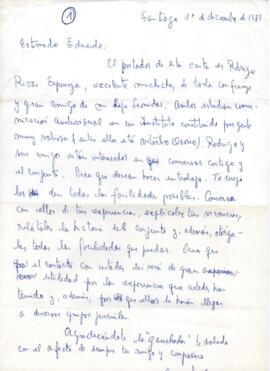 1
Santiago 1º diciembre de 1989
Estimado Eduardo:
El portador de esta carta es Rodrigo
Rivas Espinoza, excelente muchacho, de toda confianza
y gran amigo de mi hijo Leonidas. Ambos estudian comu-
nicación audiovisual en un instituto constituido por gente
muy valiosa (entre ella está Antonio Osorio). Rodrigo y
sus amigos están interesados en conversar contigo y
el conjunto. Creo que desean hacer un trabajo. Te ruego
les den todas las facilidades posibles. Conversa
con ellos de tus experiencias, explícales tus vivencias,
relátales la historia del conjunto y, además, otórga-
les todas las facilidades que puedas. Creo que
el contacto con ustedes les será de gran
utilidad por las experiencias que ustedes han
tenido y, además, porque ellos lo harán llegar
a diversos grupos juveniles.
Agradeciéndote la "gauchada" te saluda
con el afecto de siempre tu amigo y compañero